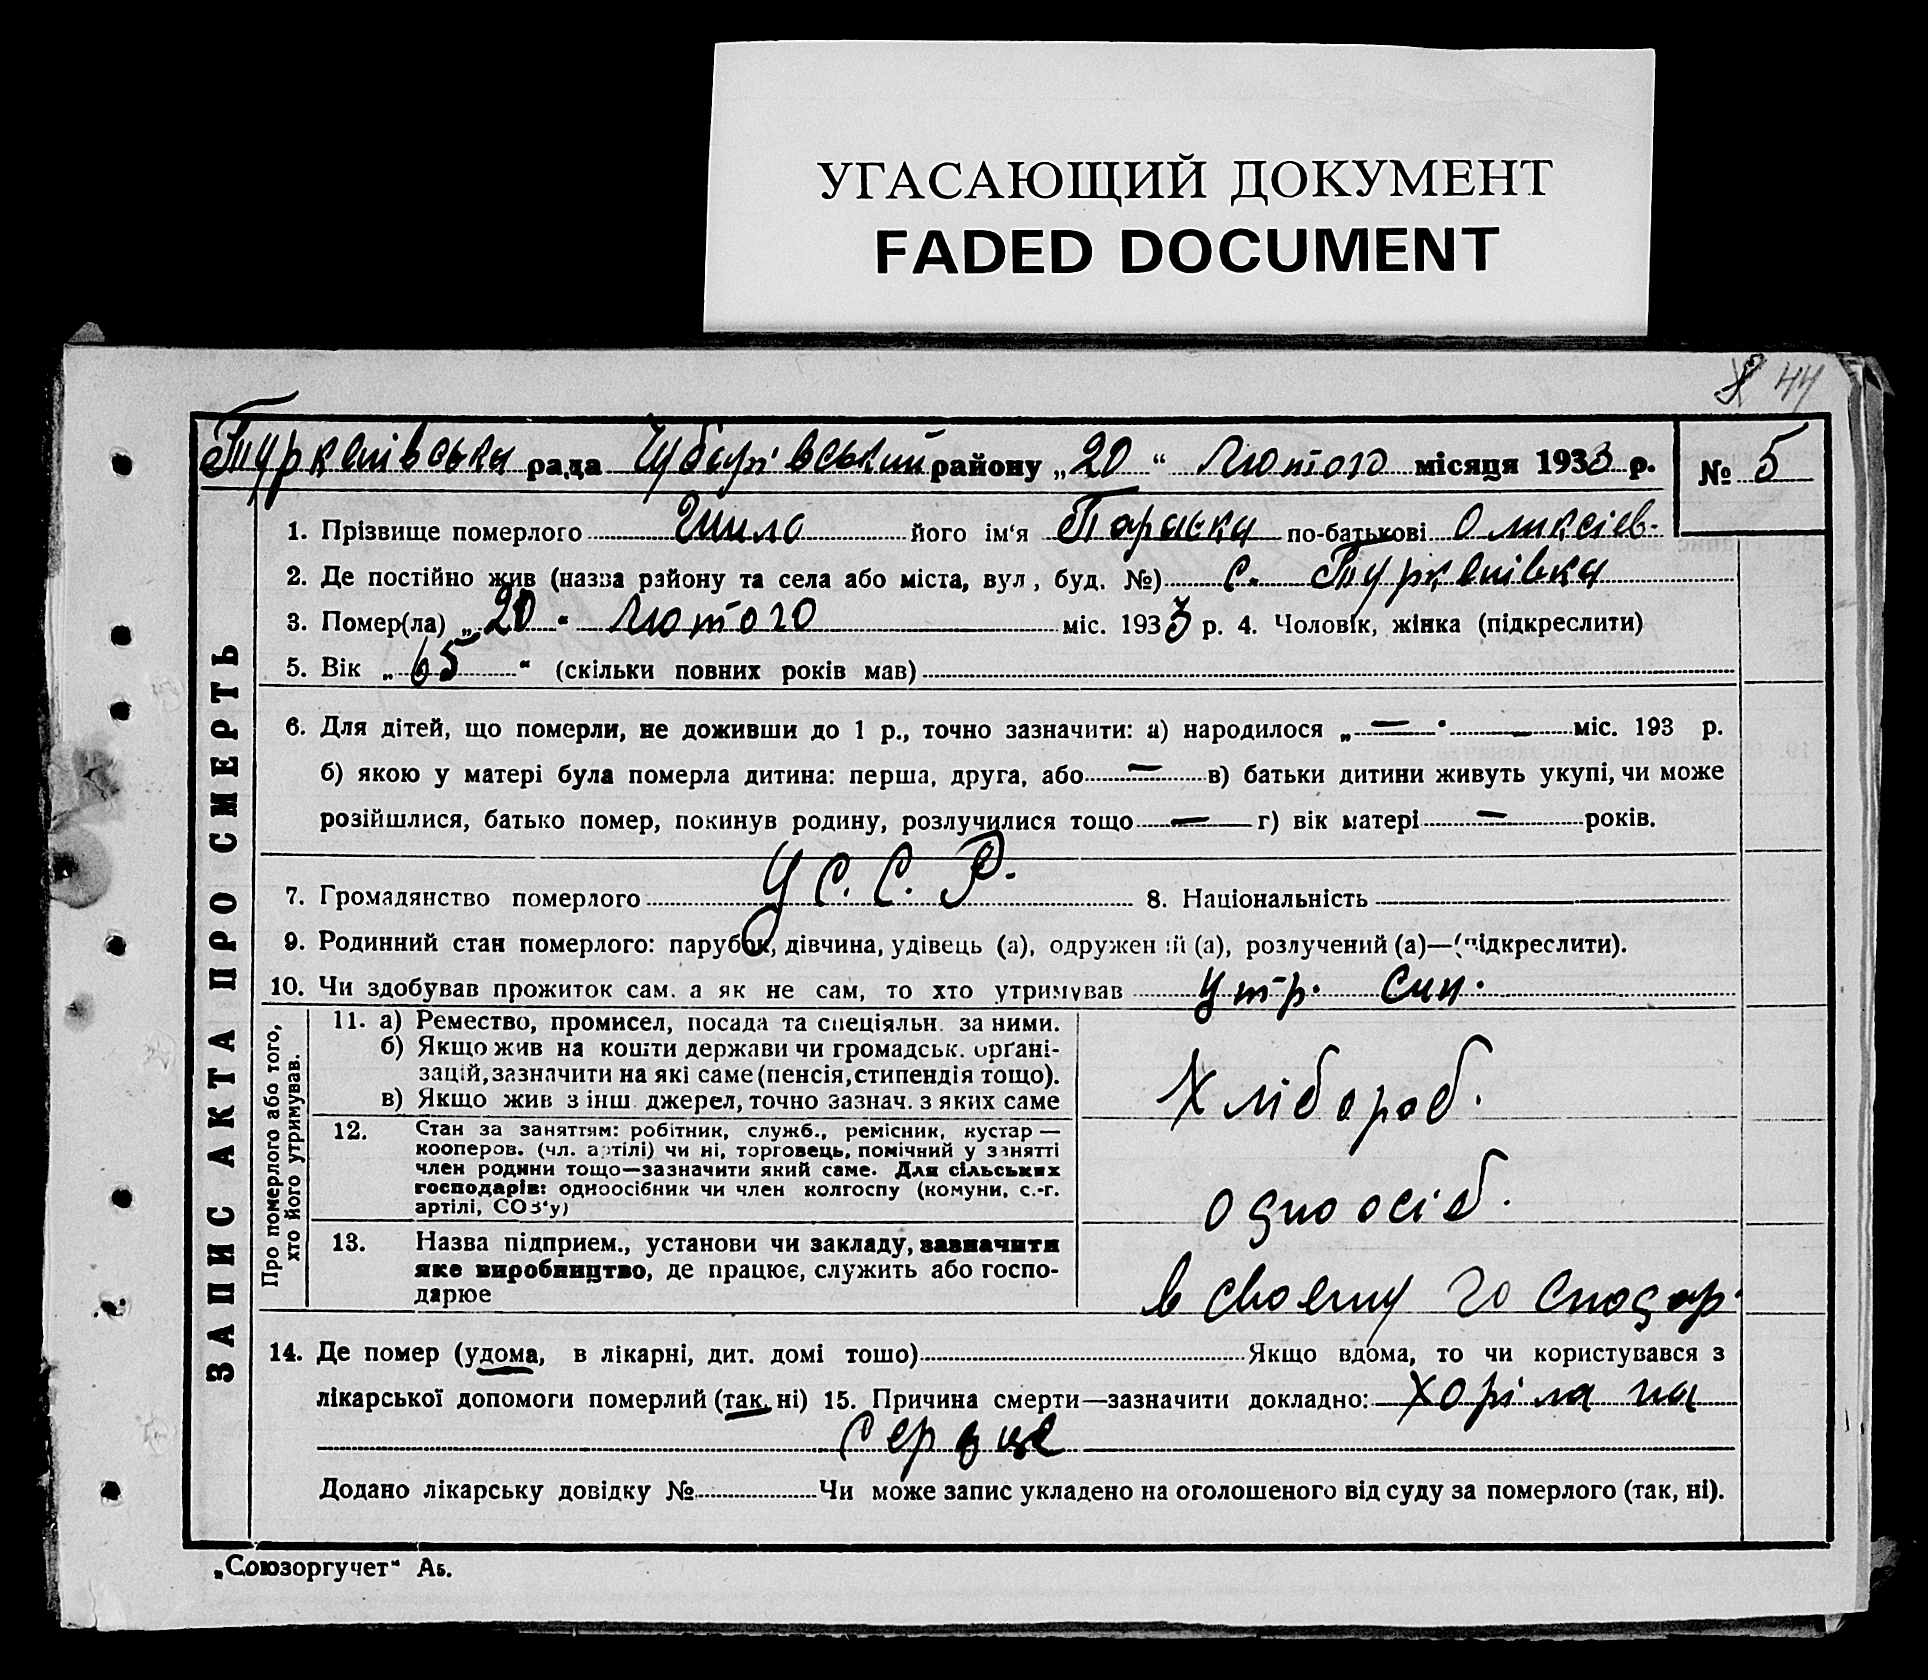 УГАСАЮЩИЙ ДОКУМЕНТ
FADED DOCUMENT
44
Туркенівська рада Чубарівський району „20“ лютого місяця 1933 р. № 5
ЗАПИС АКТА ПРО СМЕРТЬ
1. Прізвище померлого його ім'я Параска по-батькові Оликсіев.
2. Де постійно жив (назва району та села або міста, вул, буд. №) с. Туркенівка
3. Помер(ла) „20“ лютого міс. 1933 р. 4. Чоловік, жінка (підкреслити)
5. Вік „65“ (скільки повних років мав)
6. Для дітей, що померли, не доживши до 1 р., точно зазначити: а) народилося „—“ — міс. 193 р.
б) якою у матері була померла дитина: перша, друга, або — в) батьки дитини живуть укупі, чи може
розійшлися, батько помер, покинув родину, розлучилися тощо — г) вік матері — років.
7. Громадянство померлого У С. С. Р. 8. Національність
9. Родинний стан померлого: парубок, дівчина, удівець (а), одружений (а), розлучений (а)—(підкреслити).
10. Чи здобував прожиток сам. а як не сам, то хто утримував утр. син.
Про померлого або того,
хто його утримував.
11. а) Ремество, промисел, посада та спеціяльн. за ними.
б) Якщо жив на кошти держави чи громадськ. орґані-
зацій, зазначити на які саме (пенсія, стипендія тощо).
в) Якщо жив з інш джерел, точно зазнач. з яких саме
Хлібороб.
12. Стан за заняттям: робітник, служб., ремісник, кустар —
кооперов. (чл. артілі) чи ні, торговець, помічний у занятті
член родини тощо—зазначити який саме. Для сільських
господарів: одноосібник чи член колгоспу (комуни, с.-г.
артілі, СОЗ'у)
одноосіб.
13. Назва підприєм., установи чи закладу, зазначити
яке виробництво, де працює, служить або госпо-
дарює
в своему господар.
14. Де помер (удома, в лікарні, дит. домі тощо) Якщо вдома, то чи користувався з
лікарської допомоги померлий (так, ні) 15. Причина смерти—зазначити докладно: хоріла на
серदце
Додано лікарську довідку № Чи може запис укладено на оголошеного від суду за померлого (так, ні).
„Союзоргучет“ Аб.